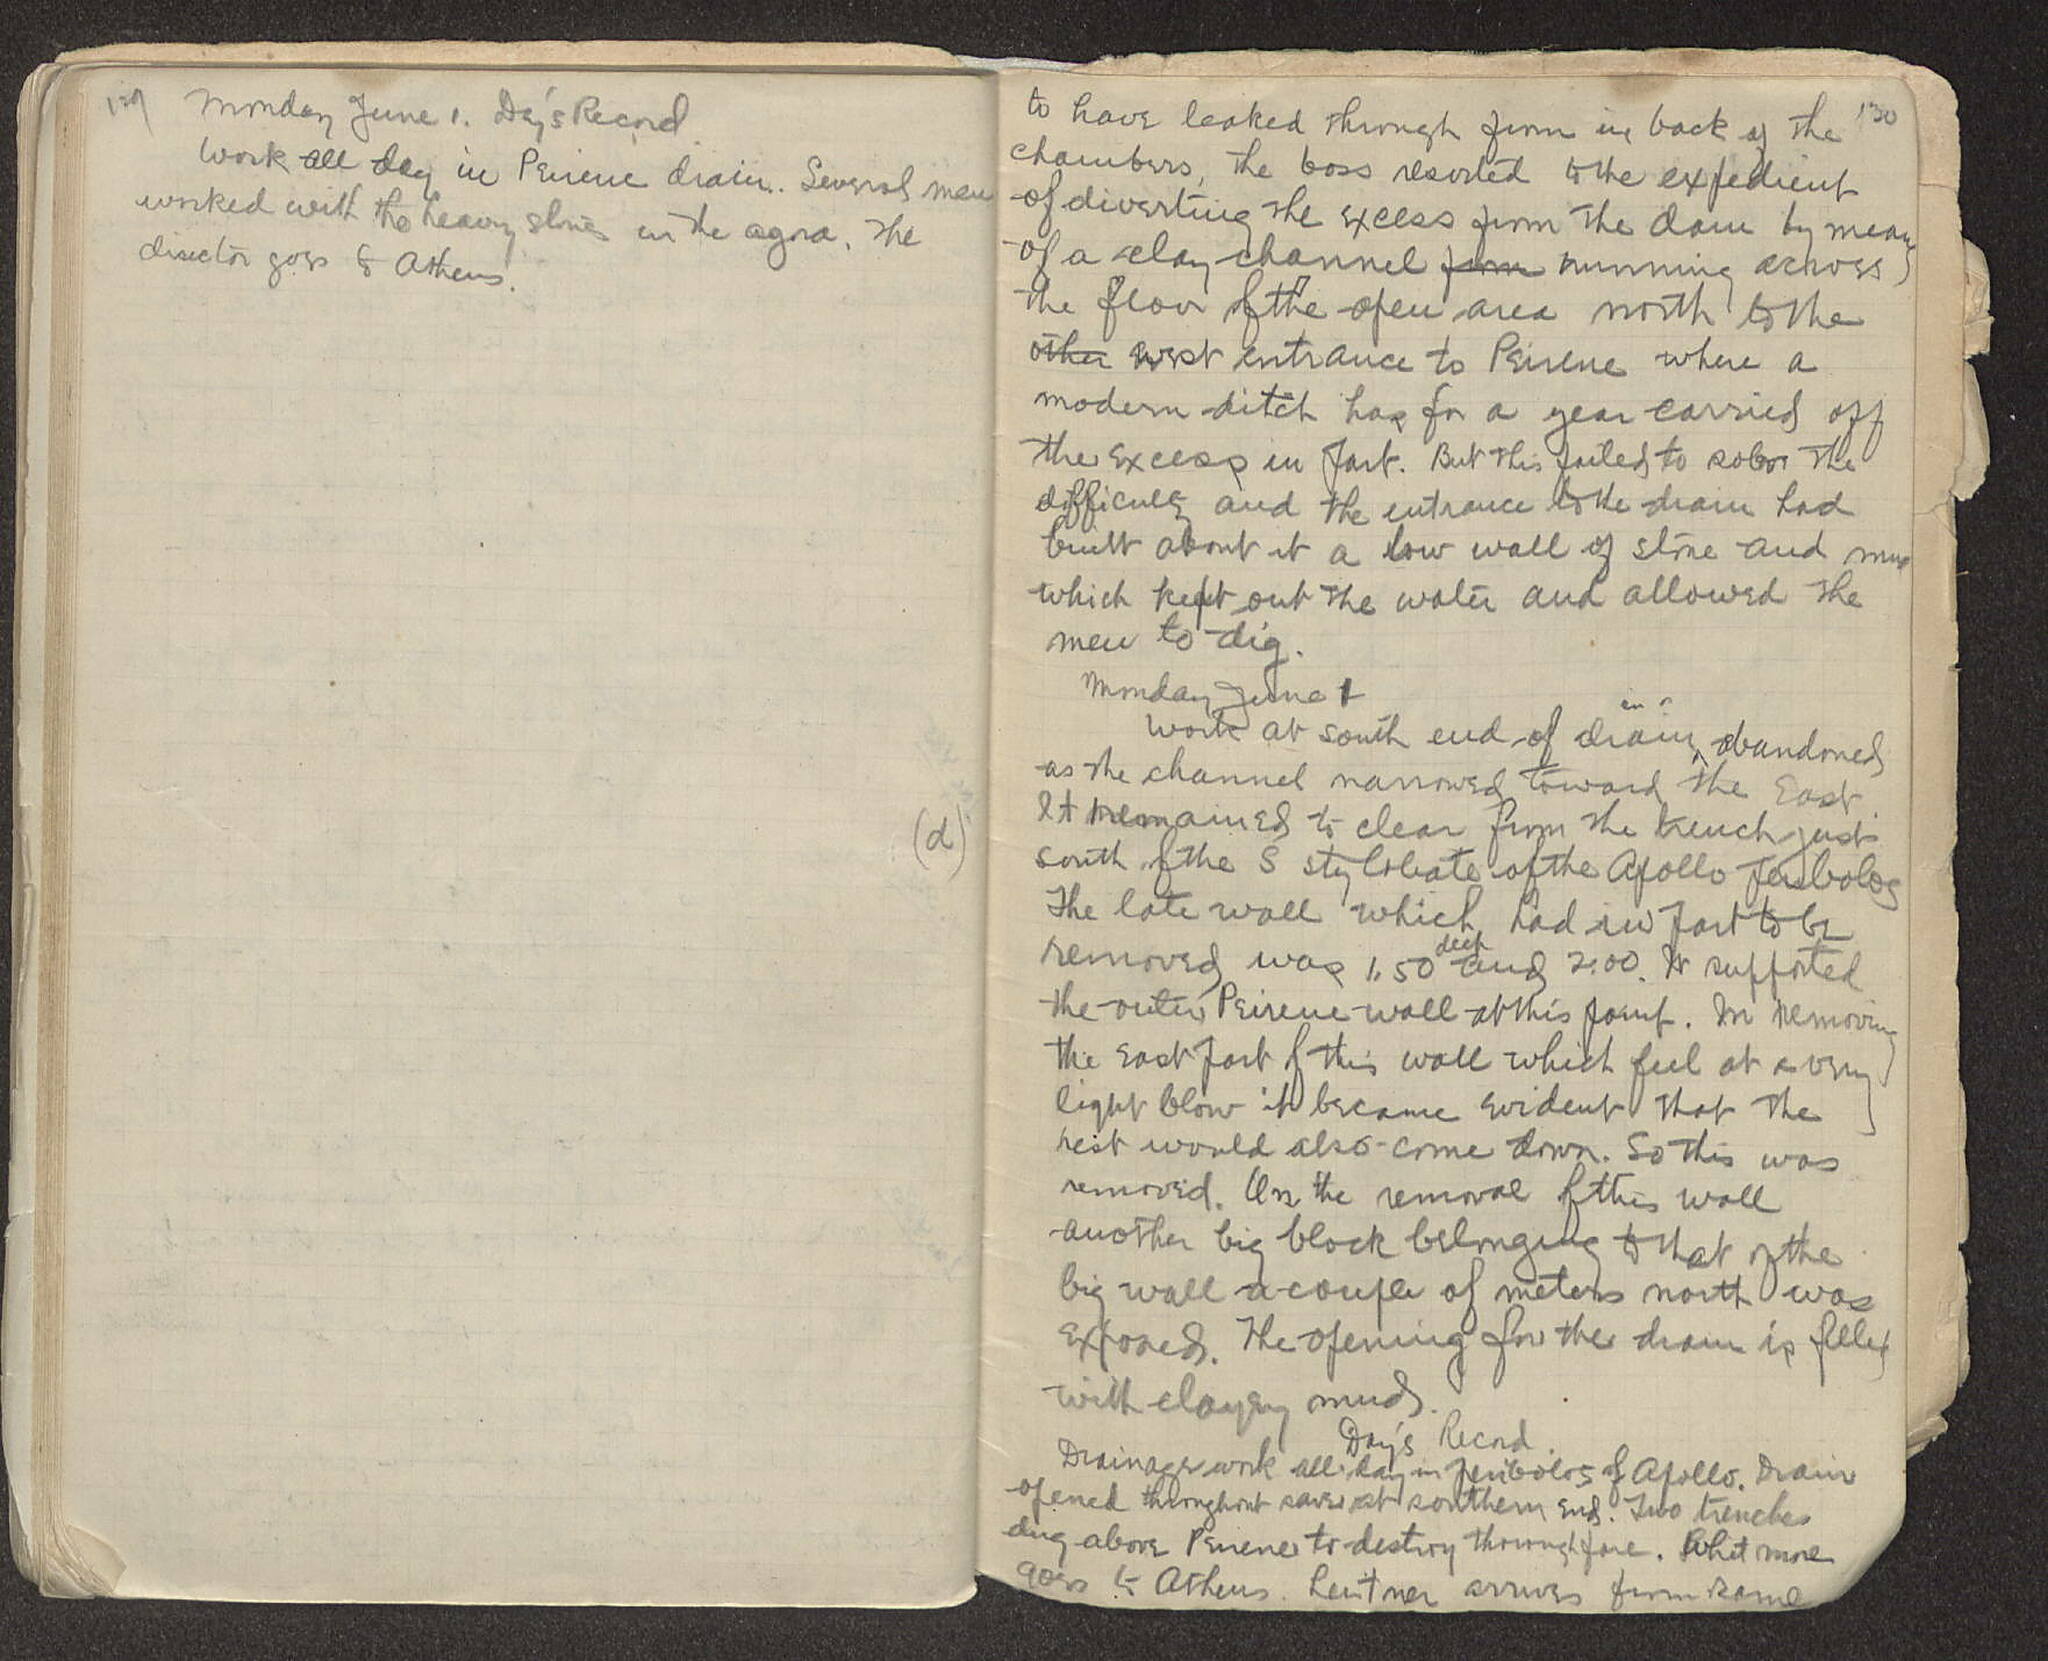 129
Monday June 1. Day's Record
Work all day in Peirene drain. Several men
worked with the heavy stones in the agora. The
director goes to Athens.
(d)
130
to have leaked through from in back of the
chambers, the boss resorted to the expedient
of diverting the excess from the dam by means
of a clay channel from running across
the floor of the open area north to the
other west entrance to Peirene where a
modern ditch has for a year carried off
the excess in part. But this failed to solve the
difficulty and the entrance to the drain had
built about it a low wall of stone and mud
which kept out the water and allowed the
men to dig.
Monday June 1
Work at south end of drain abandoned
as the channel narrowed toward the East.
It remained to clear from the trench just
south of the S stylobate of the Apollo peribolos
The late wall which had in part to be
removed was 1.50 deep and 2.00. It supported
the outer Peirene wall at this point. In removing
the east part of this wall which feel at a very
light blow it became evident that the
rest would also come down. So this was
removed. On the removal of this wall
another big block belonging to that of the
big wall a couple of meters north was
exposed. The opening for the drain is filled
with clayey mud.
Day's Record.
Drainage work all day in peribolos of Apollo. Drain
opened throughout save at southern end. Two trenches
dug above Peirene to destroy thoroughfare. Whitmore
goes to Athens. Leutner arrives from same